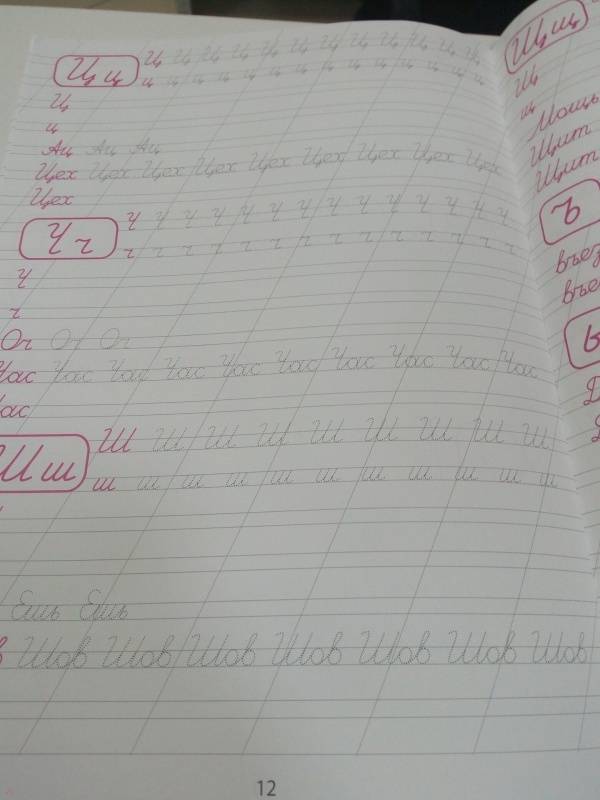 Ц ц
Ц Ц Ц Ц Ц Ц Ц Ц Ц Ц Ц Ц
ц ц ц ц ц ц ц ц ц ц ц ц ц
Ц
ц
Ац Ац Ац
Цех Цех Цех Цех Цех Цех Цех Цех Цех
Цех
Ч ч
Ч Ч Ч Ч Ч Ч Ч Ч Ч Ч Ч Ч Ч Ч
ч ч ч ч ч ч ч ч ч ч ч ч ч ч
Ч
ч
Оч Оч Оч
Час Час Час Час Час Час Час Час Час Час
Час
Ш ш
Ш Ш Ш Ш Ш Ш Ш Ш Ш
ш ш ш ш ш ш ш ш ш ш ш
Ешь Ешь
Шов Шов Шов Шов Шов Шов Шов
12
Щ щ
Щ
щ
Мощь
Щит
Щит
Ъ